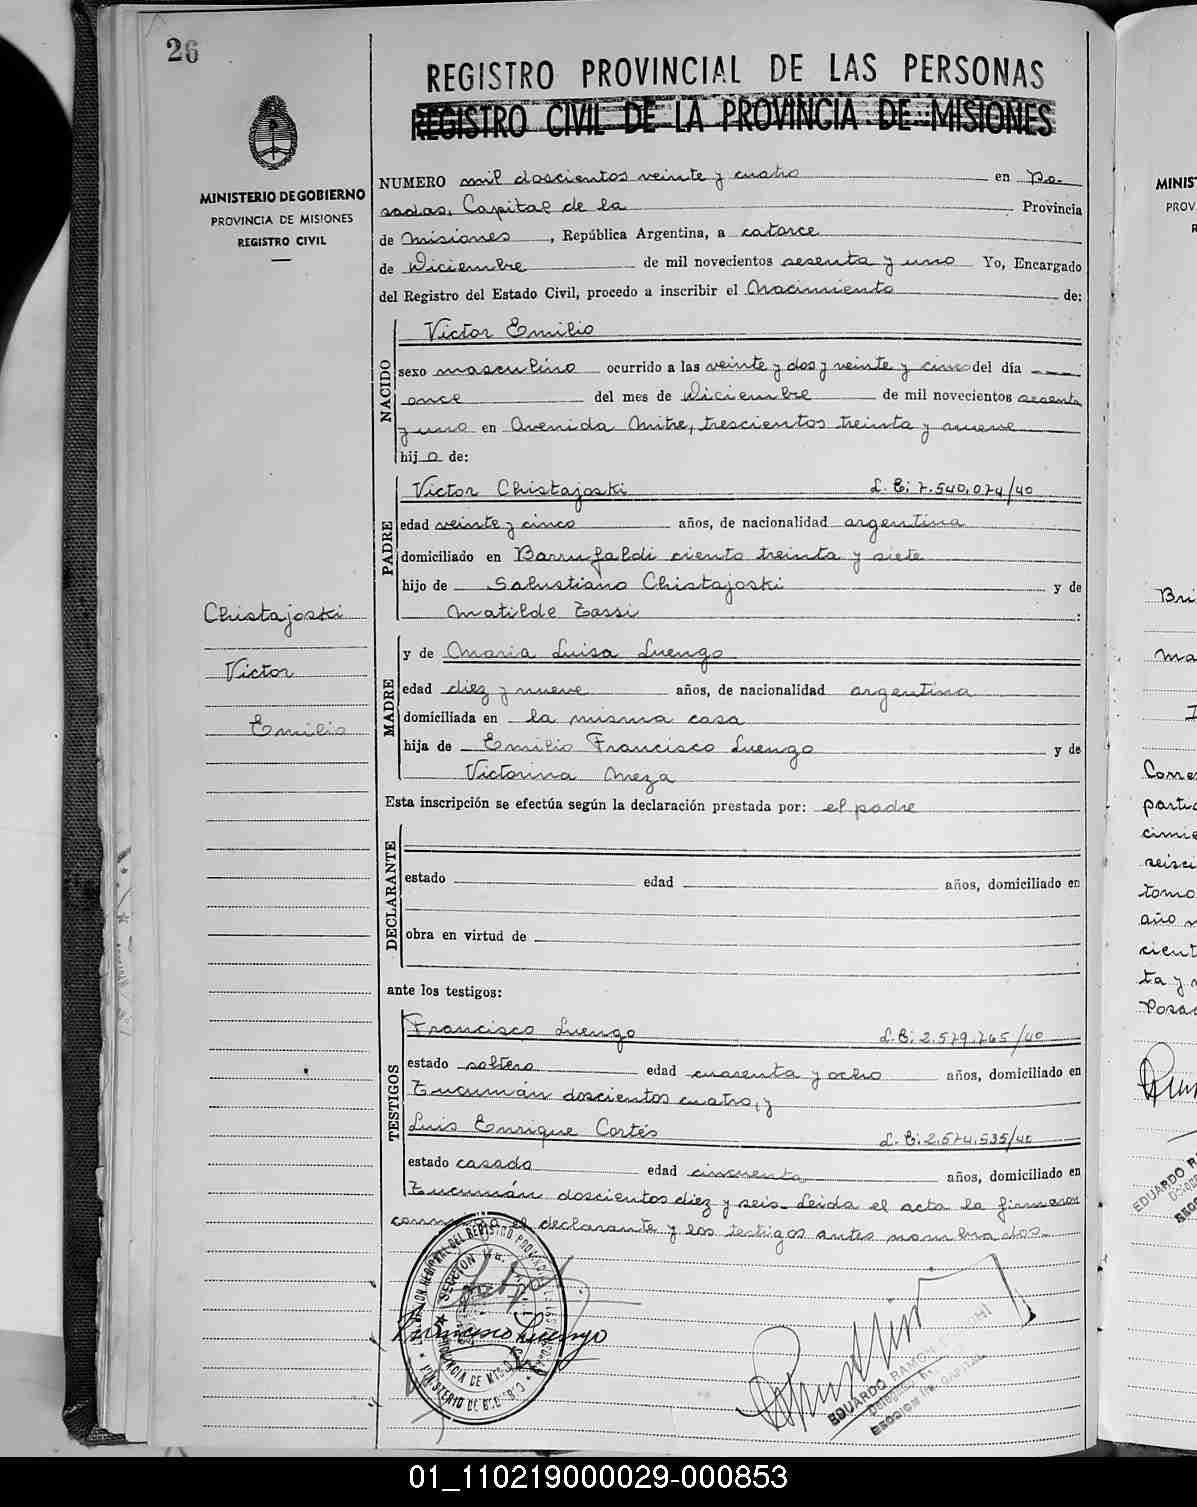 26
REGISTRO PROVINCIAL DE LAS PERSONAS
REGISTRO CIVIL DE LA PROVINCIA DE MISIONES
MINISTERIO DE GOBIERNO
PROVINCIA DE MISIONES
REGISTRO CIVIL
NUMERO mil doscientos veinte y cuatro en Po-
sadas, Capital de la Provincia
de Misiones, República Argentina, a catorce
de Diciembre de mil novecientos sesenta y uno Yo, Encargado
del Registro del Estado Civil, procedo a inscribir el Nacimiento de:
NACIDO
Victor Emilio
sexo masculino ocurrido a las veinte y dos y veinte y cinco del día
once del mes de Diciembre de mil novecientos sesenta
y uno en Avenida Mitre, trescientos treinta y nueve
hij o de:
PADRE
Victor Chistajoski L. E: 7.540.074/40
edad veinte y cinco años, de nacionalidad argentina
domiciliado en Barrufaldi ciento treinta y siete
hijo de Salustiano Chistajoski y de
Matilde Tassi :
Chistajoski
Victor
Emilio
MADRE
y de Maria Luisa Luengo
edad diez y nueve años, de nacionalidad argentina
domiciliada en la misma casa
hija de Emilio Francisco Luengo y de
Victorina Meza
Esta inscripción se efectúa según la declaración prestada por: el padre
DECLARANTE
estado edad años, domiciliado en
obra en virtud de
ante los testigos:
TESTIGOS
Francisco Luengo L. E: 2.579.765/40
estado soltero edad cuarenta y ocho años, domiciliado en
Tucumán doscientos cuatro, y
Luis Enrique Cortés L. E: 2.574.535/40
estado casado edad cincuenta años, domiciliado en
Tucumán doscientos diez y seis. Leida el acta la firmaron
conmigo el declarante y los testigos antes nombrados.
Francisco Luengo
SECCION
PROVINCIA DE MISIONES
MINISTERIO DE GOB.
EDUARDO RAMON
MINIST
PROV
R
Bri
Ma
Corres
partid
cimie
seisci
tomo
año
cient
ta y
Posad
EDUARDO R
01_110219000029-000853